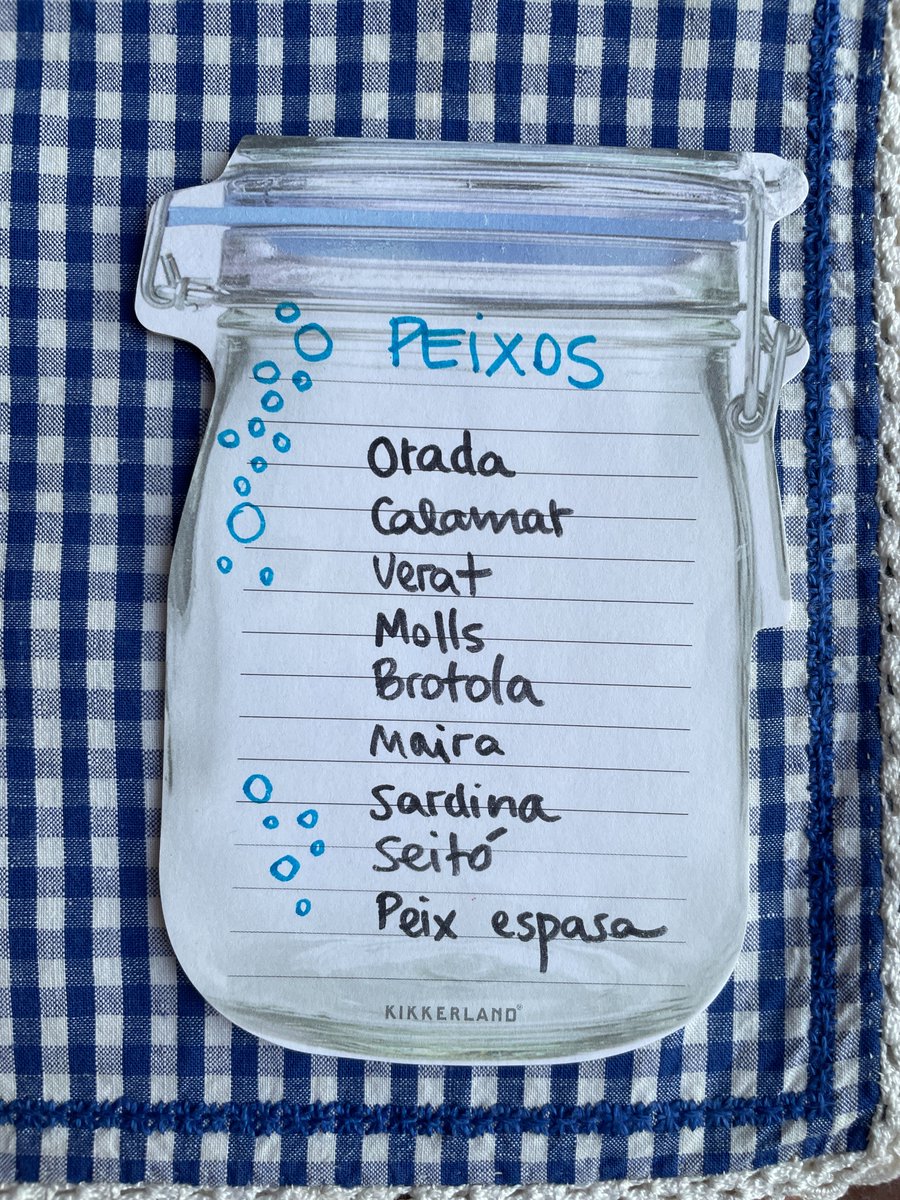 PEIXOS
Orada
Calamar
Verat
Molls
Brotola
Maira
Sardina
Seitó
Peix espasa
KIKKERLAND®